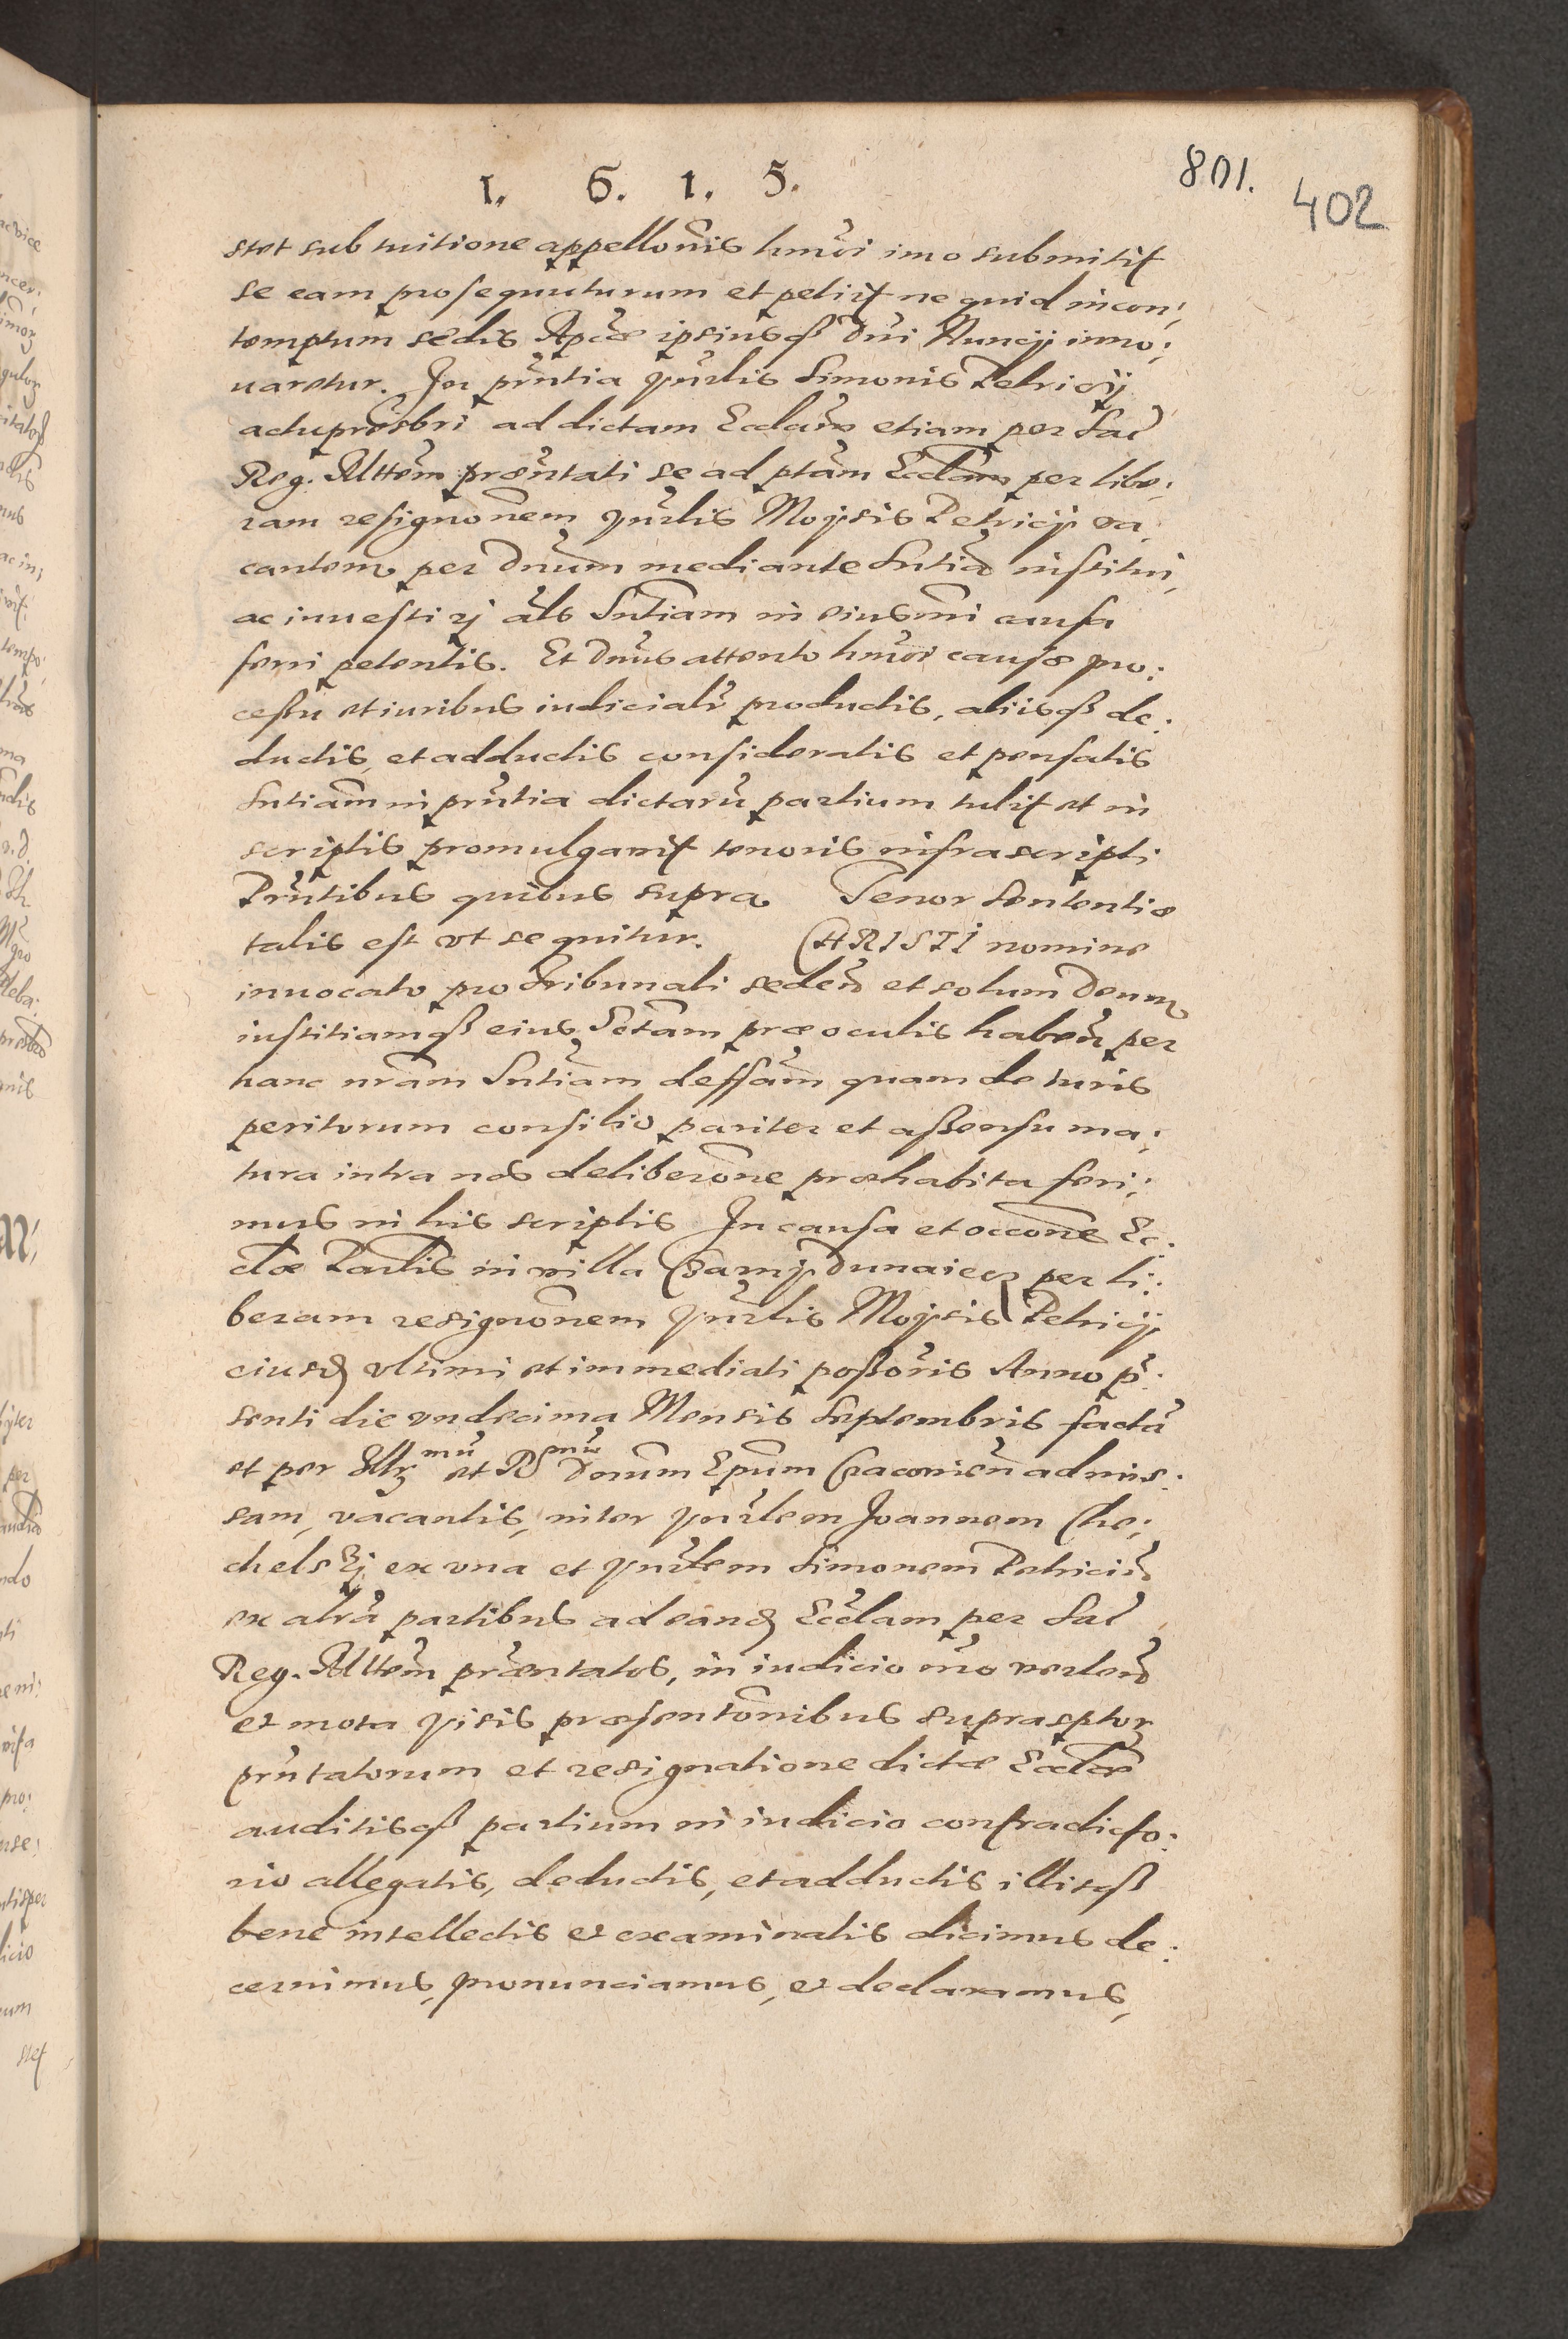 1. 6. 1. 5.
801.
402
stet sub tuitione appellõnis hmõi imo submitit
se eam prosequuturum et petiit ne quid in con:
temptum sedis Apcæ ipsiusqß Dni Nuncij inno:
uaretur. In pñtia ꝟñrlis Simonis Petricij
actu presbri ad dictam Ecclam etiam per Sac
Reg. Mttem præntati se ad ptam Ecclam per libe:
ram resignonem ꝟñrlis Moysis Petricij va:
cantem per Dnum mediante Sntia institui,
ac inuestirj als Sntiam in eiusmi causa
ferri petentis. Et Dnus attento hmoi causæ pro:
cessu et iuribus iudicialr productis, aliisqß de:
ductis, et adductis consideratis et pensatis
Sntiam in prntia dictarũ partium tulit et in
scriptis promulgauit tenoris infrascripti
Prntibus quibus supra Tenor Sententiæ
talis est vt sequitur. CHRISTI nomine
inuocato pro Tribunali sedeñ et solum Deum
iustitiamqß eius Sctam præ oculis habeñ per
hanc nram Sntiam deffam quam de iuris
peritorum consilio pariter et assensu ma:
tura intra nos deliberõne præhabita feri:
mus in his scriptis In causa et occõne Ec:
clæ Parlis in villa Czarny Dunaiecz per li:
beram resignõnem ꝟñrlis Moysis Petricij
eiusd vltimi et immediati possõris Anno p̃:
senti die vndecima Mensis Septembris factã
et per Illr mũ et R mũ Dnum Epum Cracouieñ admis:
sam, vacantis, inter ꝟñrlem Joannem Che:
chelskj ex vna et ꝟñrlem Simonem Petriciũ
ex altra partibus ad eand Ecclam per Sac
Reg. Mttem præntatos, in iudicio nro verteñ
et mota visis præsentõnibus suprasptor
prntatorum et resignatione dictæ Ecclæ
auditisqß partium in iudicio contradicto:
rio allegatis, deductis, et adductis illisqß
bene intellectis et examinatis dicimus de:
cernimus, pronunciamus, et declaramus,